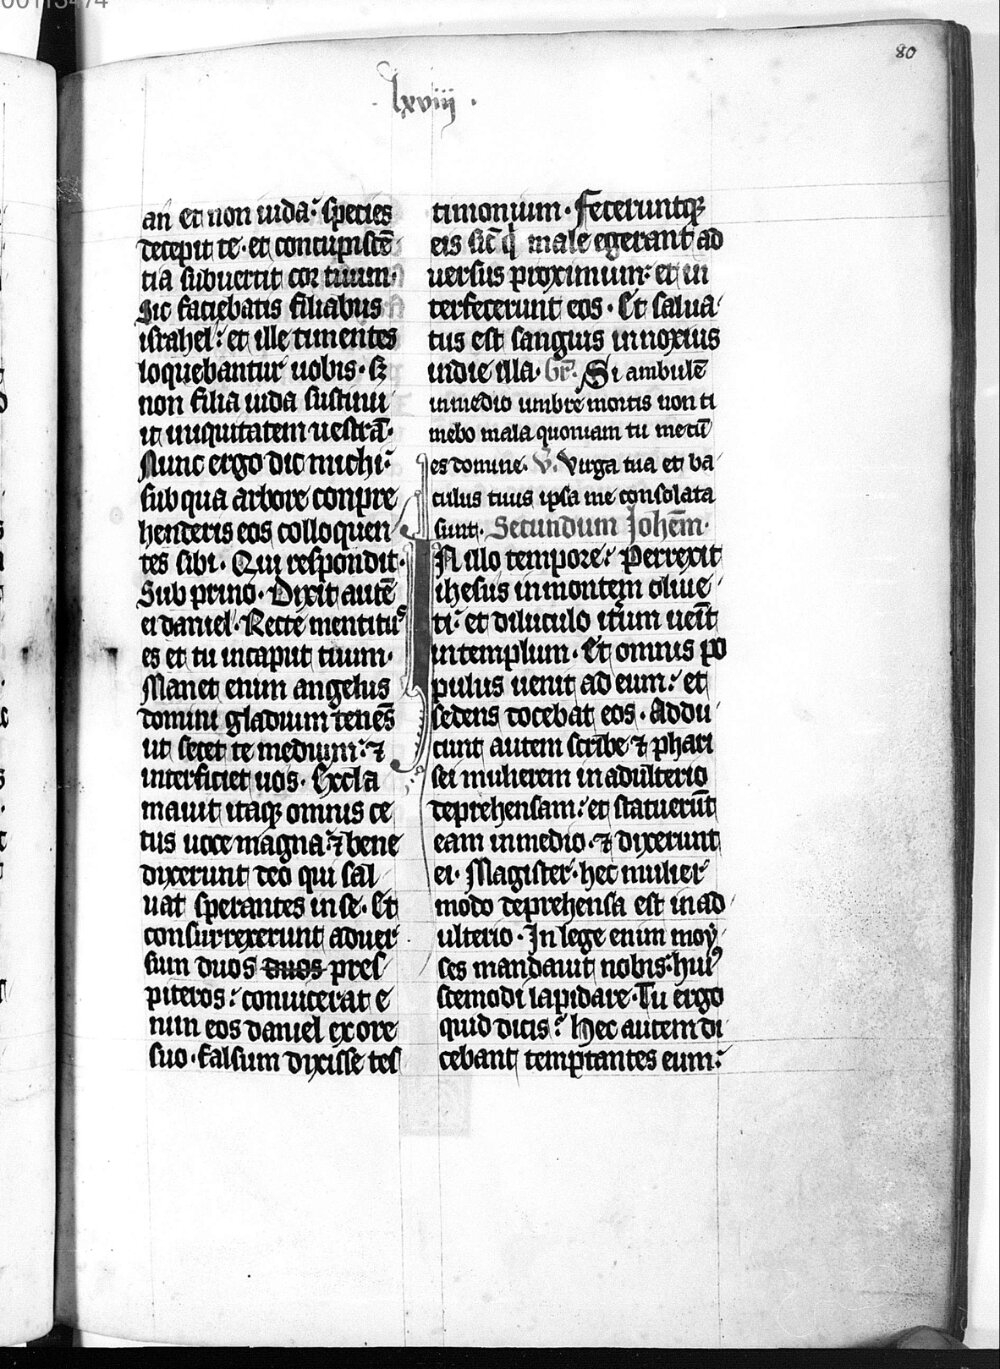 80
· lxviij ·
an et non iuda : species
decepit te · et concupiscē
tia subvertit cor tuum ·
Sic faciebatis filiabus
israhel : et ille timentes
loquebantur uobis · sꝫ
non filia iuda sustinu
it iniquitatem uestrā ·
Nunc ergo dic michi :
sub qua arbore conpre
henderis eos colloquen
tes sibi · Qui respondit ·
Sub prino · Dixit autē
ei daniel · Recte mentitus
es et tu in caput tuum ·
Manet enim angelus
domini gladium tenēs
ut secet te medium : ⁊
interficiet uos · Excla
mauit itaqꝫ omnis ce
tus uoce magna : ⁊ bene
dixerunt deo qui sal
uat sperantes in se · Et
consurrexerunt aduer
sum duos duos pres
piteros : conuicerat e
nim eos daniel ex ore
suo · falsum dixisse tes
timonium · feceruntqꝫ
eis sic̄ q̇ male egerant ad
uersus proximum : et in
terfecerunt eos · Et salua
tus est sanguis innoxius
in die illa · Gr̄. Si ambulē
in medio umbre mortis non ti
mebo mala quoniam tu mecū
es domine · V. Virga tua et ba
culus tuus ipsa me consolata
sunt · Secundum Johēm ·
IN illo tempore : Perrexit
ihesus in montem oliue
ti : et diluculo itr̄um uenit
in templum · Et omnis po
pulus uenit ad eum : et
sedens docebat eos · Addu
cunt autem scribe ⁊ phari
sei mulierem in adulterio
deprehensam : et statuerūt
eam in medio · ⁊ dixerunt
ei · Magister · hec mulier
modo deprehensa est in ad
ulterio · In lege enim moy
ses mandauit nobis · huiꝰ
scemodi lapidare · Tu ergo
quid dicis ? Hec autem di
cebant temptantes eum :